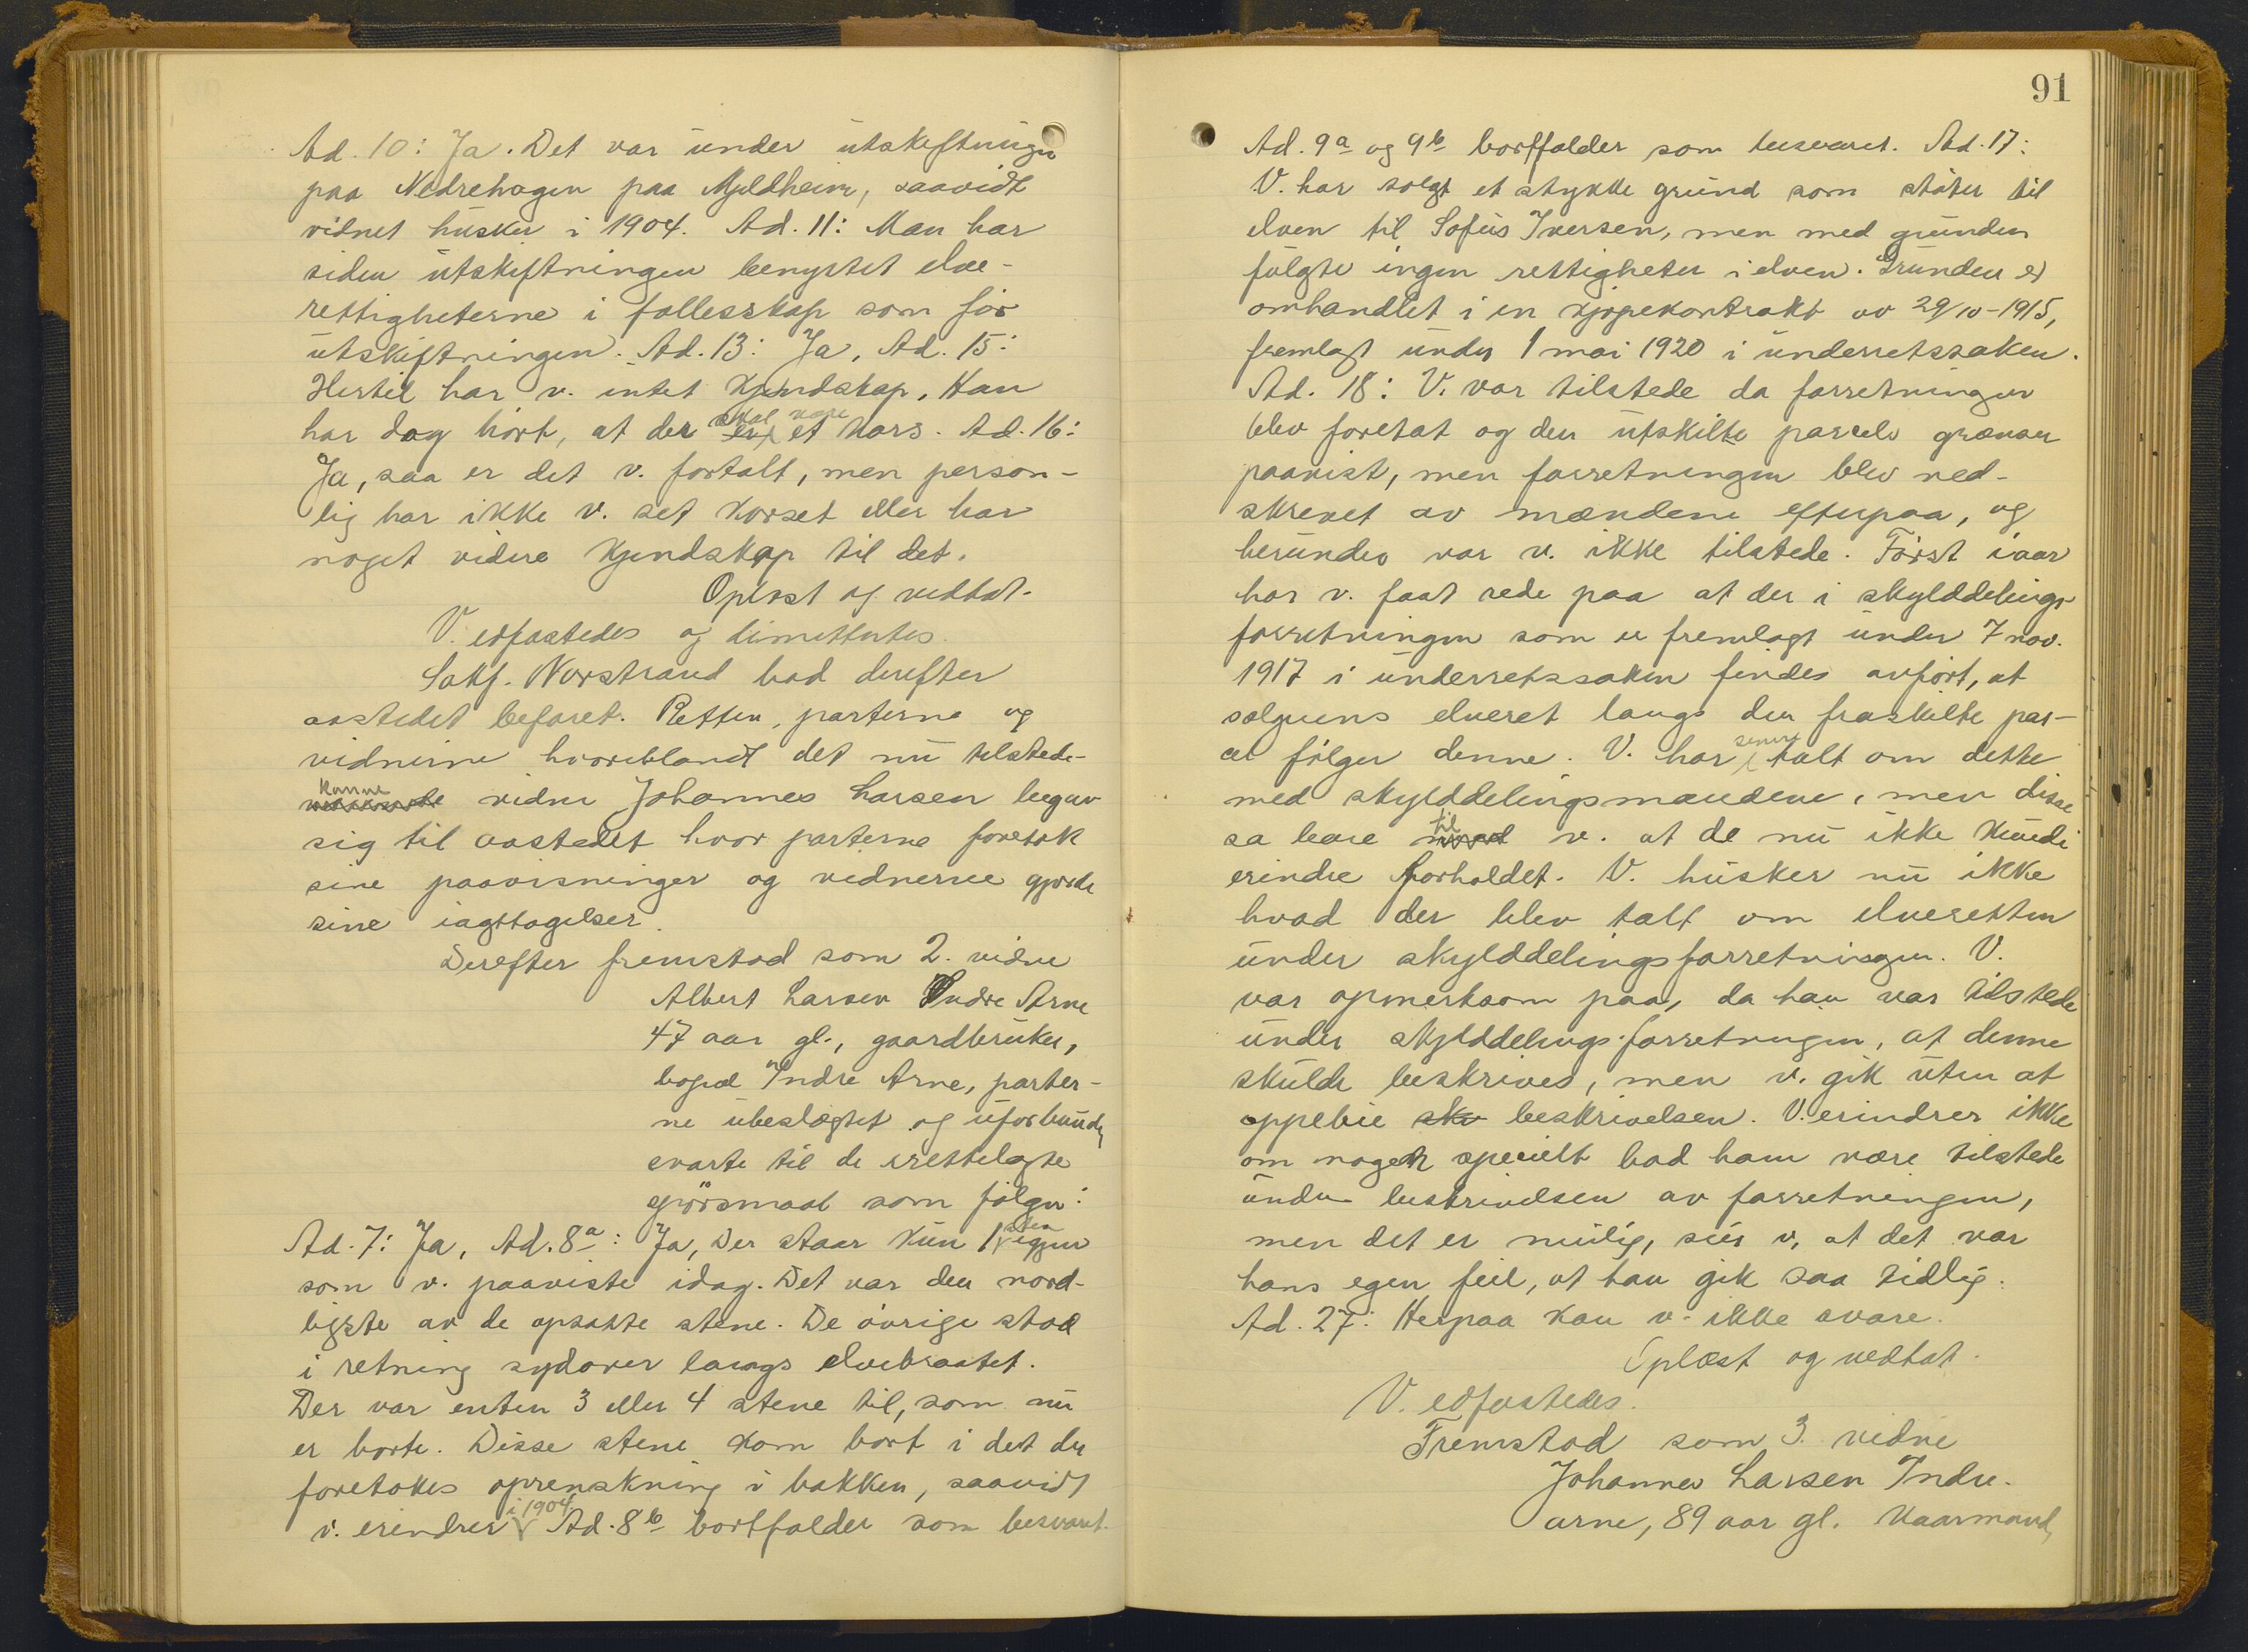 Ad. 10: Ja. Det var under utskiftningen
paa Nedrehagen paa Myldheim, saavidt
vidnet husker i 1904. Ad. 11: Man har
siden utskiftningen benyttet elve-
rettigheterne i fællesskap som før
utskiftningen. Ad. 13: Ja, Ad. 15:
Hertil har v. intet kjendskap. Han
har dog hørt, at der er skal være et kors. Ad. 16:
Ja, saa er det v. fortalt, men person-
lig har ikke v. set korset eller har
noget videre kjendskap til det.
Oplæst og vedtat.
V. edfæstedes og dimittertes.
Sakf. Norstrand bad derefter
aastedet befaret. Retten, parterne og
vidnerne hvoriblandt det nu tilstede-
komne vidne Johannes Larsen begav
sig til aastedet hvor parterne foretok
sine paavisninger og vidnerne gjorde
sine iagttagelser.
Derefter fremstod som 2. vidne
Albert Larsen Indre Arne
47 aar gl., gaardbruker,
bopæl Indre Arne, parter-
ne ubeslægtet og uforbunden
svarte til de irettelagte
spørsmaal som følger:
Ad. 7: Ja, Ad. 8a: Ja, Der staar kun 1 sten igjen
som v. paaviste idag. Det var den nord-
ligste av de opsatte stene. De øvrige stod
i retning sydover langs elvebraatet.
Der var enten 3 eller 4 stene til, som nu
er borte. Disse stene kom bort i det der
foretokes oprenskning i bakken, saavidt
v. erindrer i 1904. Ad. 8b bortfalder som besvaret.
91
Ad. 9a og 9b bortfalder som besvaret. Ad. 17:
V. har solgt et stykke grund som støter til
elven til Sofus Iversen, men med grunden
fulgte ingen rettigheter i elven. Grunden er
omhandlet i en kjøpekontrakt av 29/10-1915,
fremlagt under 1 mai 1920 i underretssaken.
Ad. 18: V. var tilstede da forretningen
blev foretat og den utskilte parcels grænser
paavist, men forretningen blev ned-
skrevet av mændene efterpaa, og
herunder var v. ikke tilstede. Først iaar
har v. faat rede paa at der i skylddelings-
forretningen som er fremlagt under 7 nov.
1917 i underretssaken findes anført, at
sælgerens elveret langs den fraskilte par-
cel følger denne. V. har senere talt om dette
med skylddelingsmændene, men disse
sa bare til v. at de nu ikke kunde
erindre forholdet. V. husker nu ikke
hvad der blev talt om elveretten
under skylddelingsforretningen. V.
var opmerksom paa, da han var tilstede
under skylddelingsforretningen, at denne
skulde beskrives, men v. gik uten at
oppebie sku beskrivelsen. V. erindrer ikke
om nogen specielt bad ham være tilstede
under beskrivelsen av forretningen,
men det er mulig, sier v, at det var
hans egen feil, at han gik saa tidlig.
Ad. 27: Herpaa kan v. ikke svare.
Oplæst og vedtat.
V. edfæstedes.
Fremstod som 3. vidne
Johannes Larsen Indre-
arne, 89 aar gl. Kaarmand,